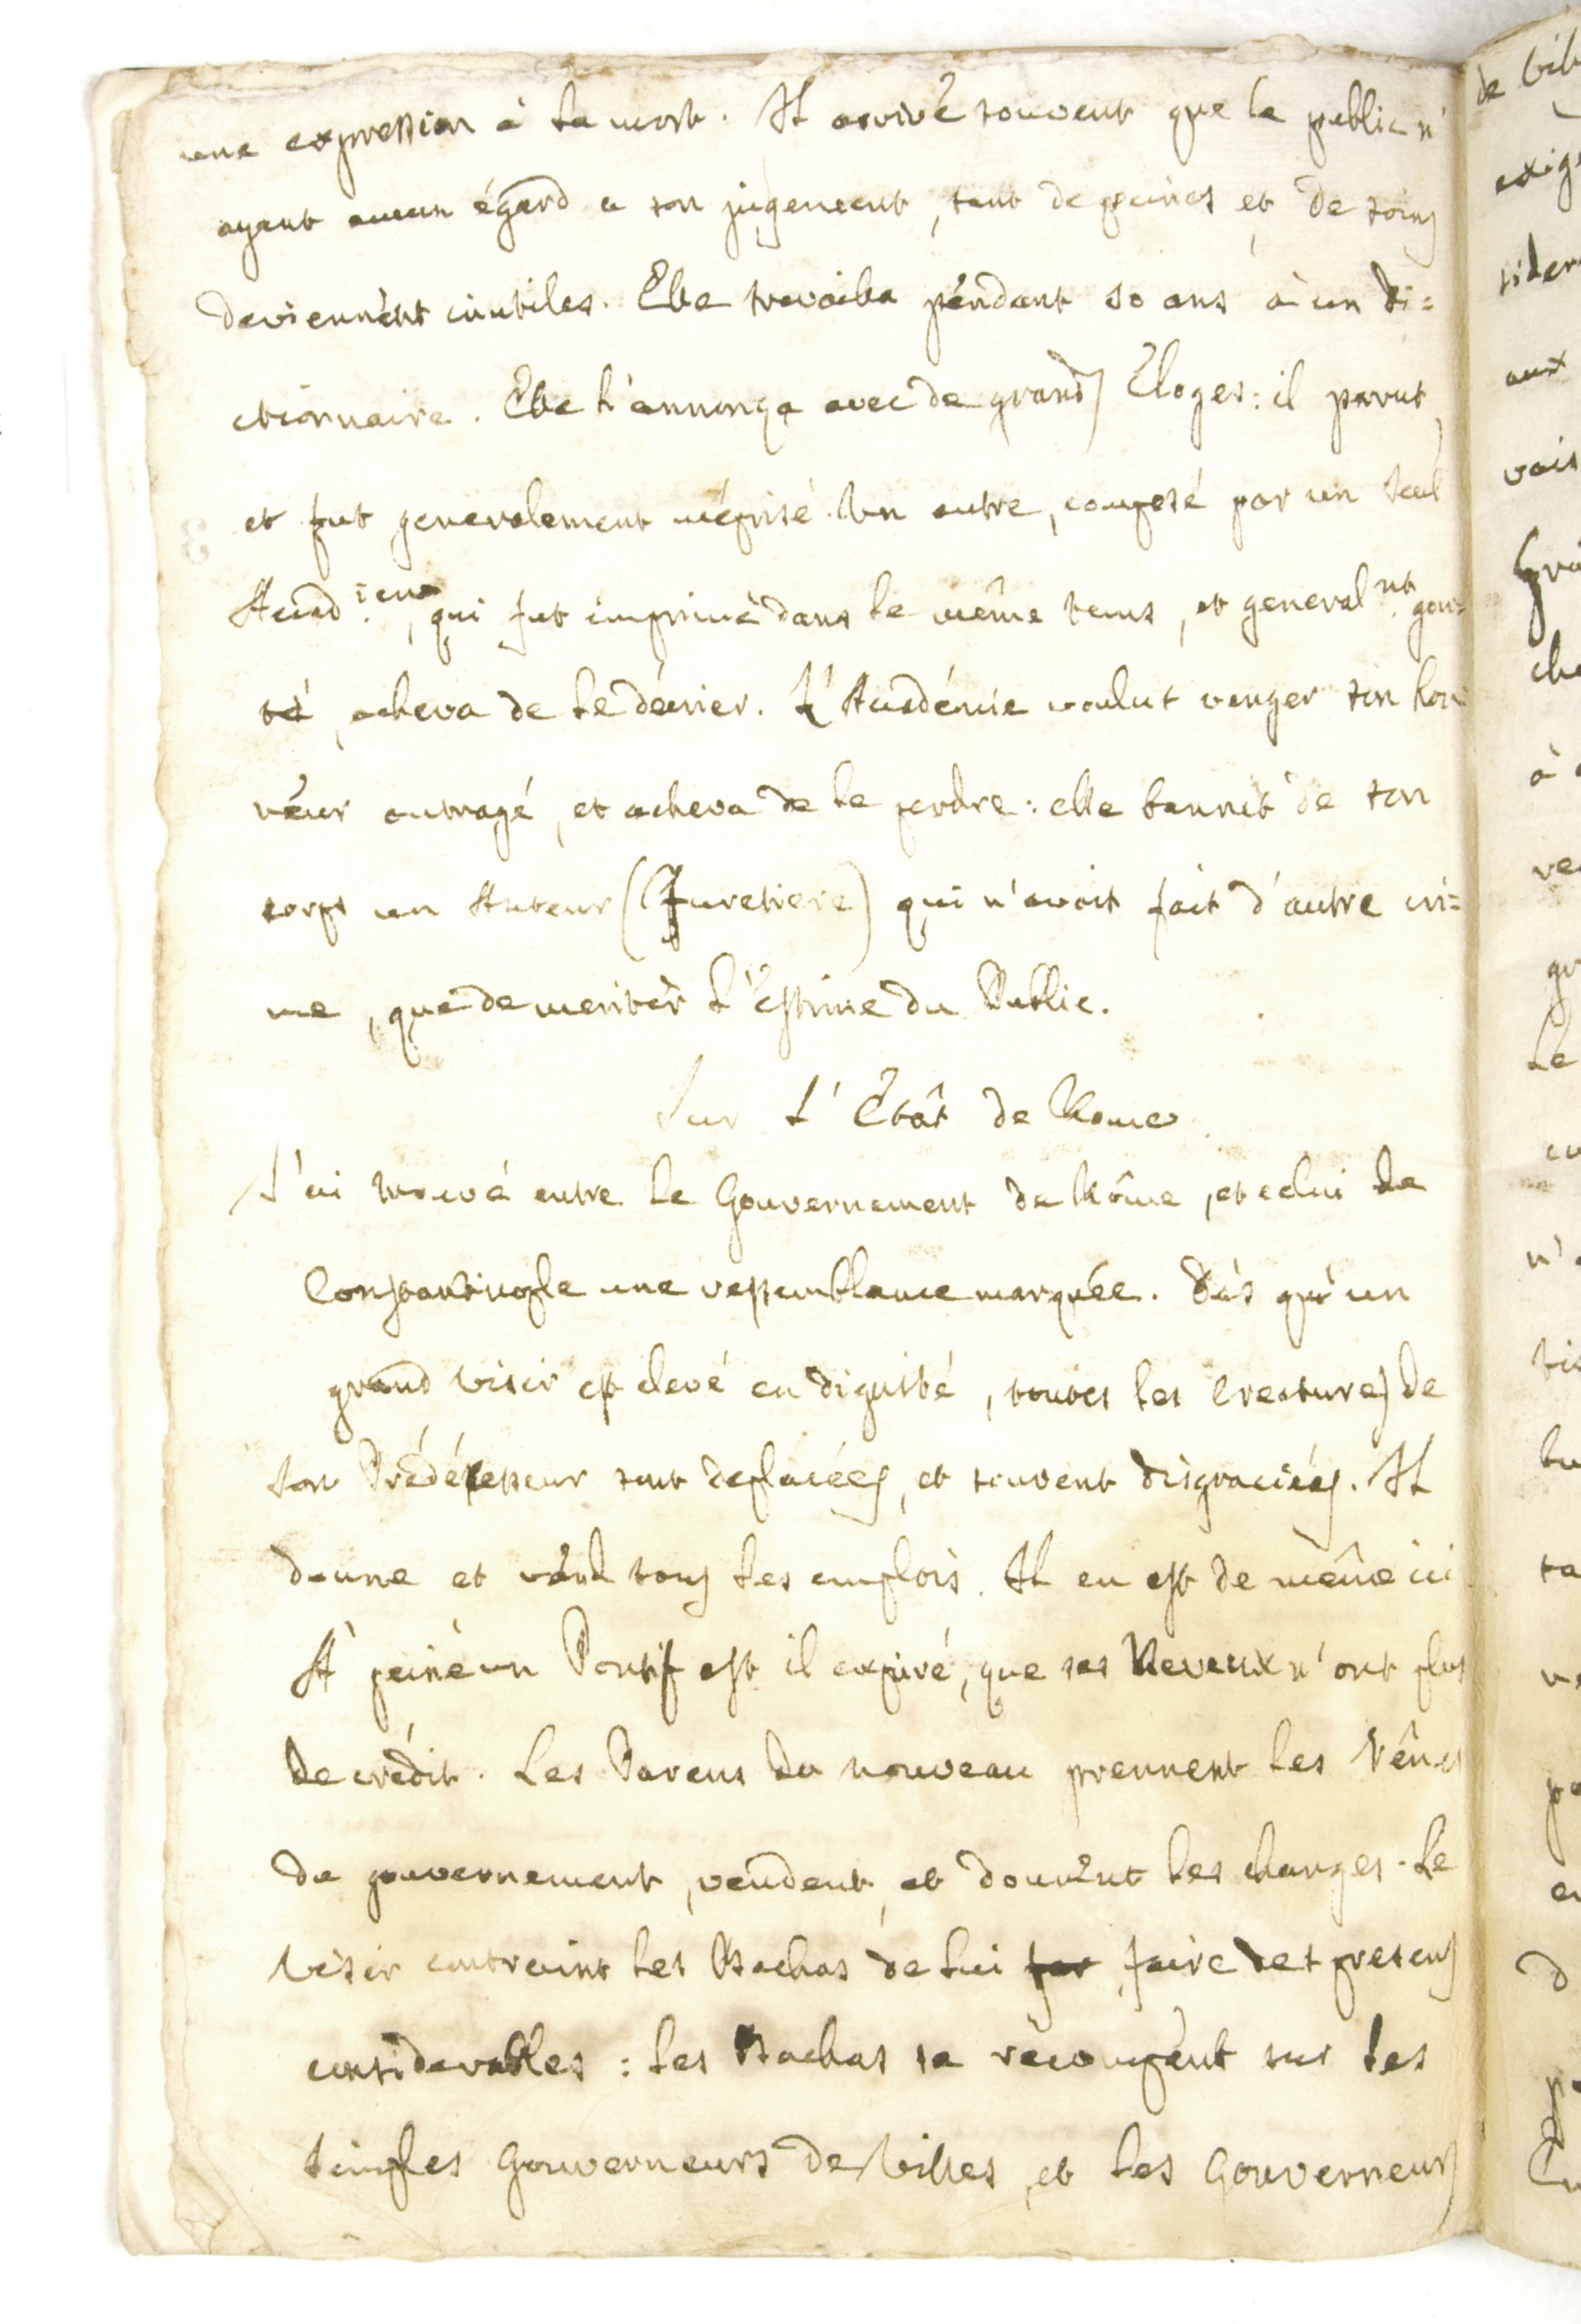 une expression à la mort. Il arrive souvent que le public n'
ayant aucun égard a son jugement, tant de peines et de soins
deviennent inutiles. Elle travailla pendant 50 ans à un Di=
ctionnaire. Elle l'annonça avec de grands Éloges: il parut,
et fut generalement méprisé. Un autre, composé par un seul
Acad.ien, qui fut imprimé dans le même tems, et general.nt gou=
té, acheva de le décrier. L'Académie voulut venger son hon
neur outragé, et acheva de le perdre: elle bannit de son
corps un Auteur (Furetiere) qui n'avoit fait d'autre cri=
me, que de meriter l'Estime du Public.
Sur L'Etât de Rome.
J'ai trouvé entre le Gouvernement de Rôme, et celui de
Constantinople une ressemblance marquée. Dès qu'un
grand Visir est elevé en dignité, toutes les Creatures de
son Prédécesseur sont deplacées, et souvent disgraciées. Il
donne et vend tous les emplois. Il en est de même ici
A peine un Pontif est il expiré, que ses Neveux n'ont plus
de crédit. Les Parens du nouveau prennent les Rênes
de gouvernement, vendent, et donnent les charges. Le
Visir contraint les Bachas de lui faire des presens
considerables: les Bachas se récompent sur les
simples Gouverneurs de Villes, et les Gouverneurs
de Vill
exige
sider
aux
vois